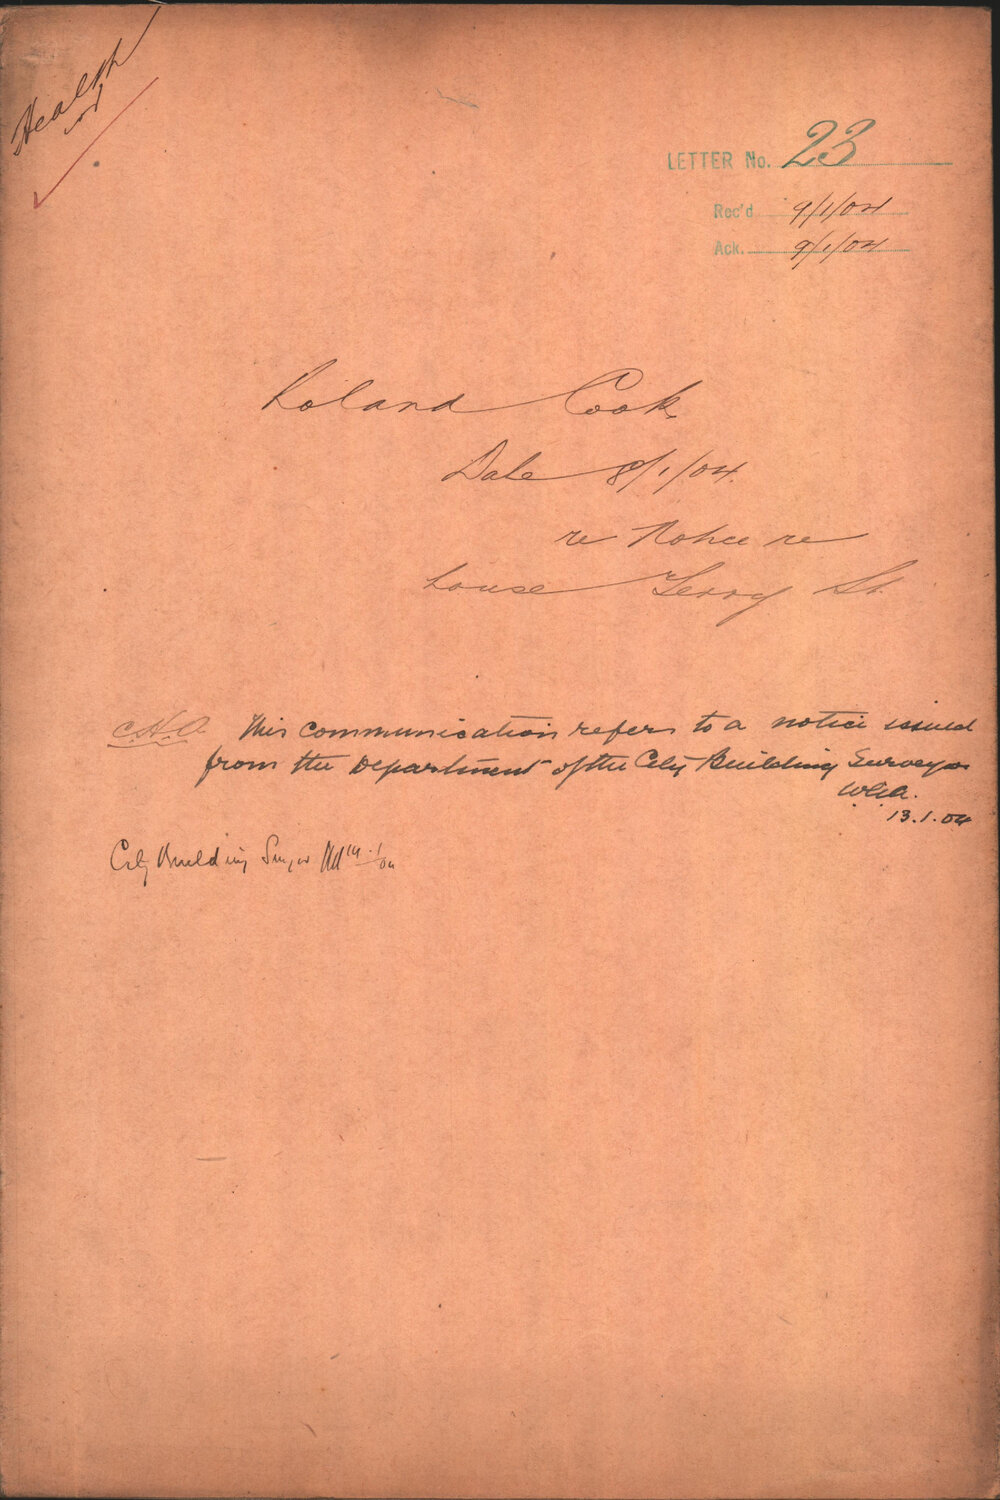 Health
LETTER No. 23
Rec'd 9/1/04
Ack. 9/1/04
Roland Cook
Date 8/1/04.
re Notice re
house Gerry St.
C.H.O. This communication refers to a notice issued
from the Department of the City Building Surveyor
13.1.04
City Building Surveyor 14/1/04